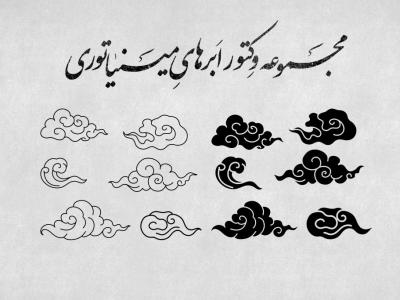 مجموعه وکتور اَبرهایِ مینیاتوری